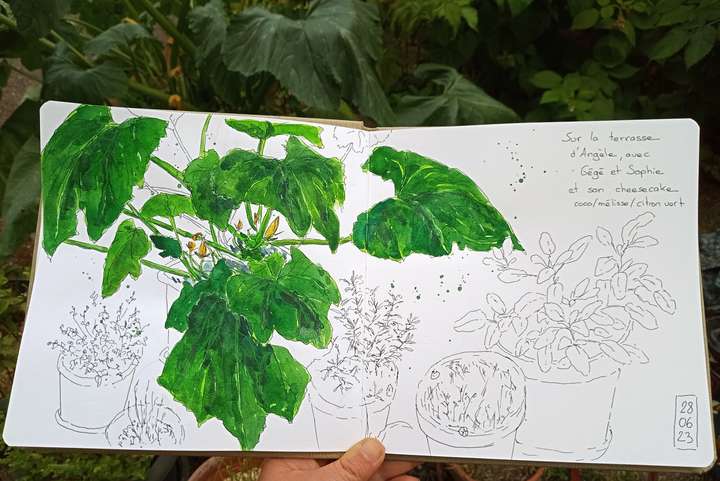 Sur la terrasse
d'Angèle, avec
Gégé et Sophie
et son cheesecake
coco/mélisse/citron vert
28
06
23